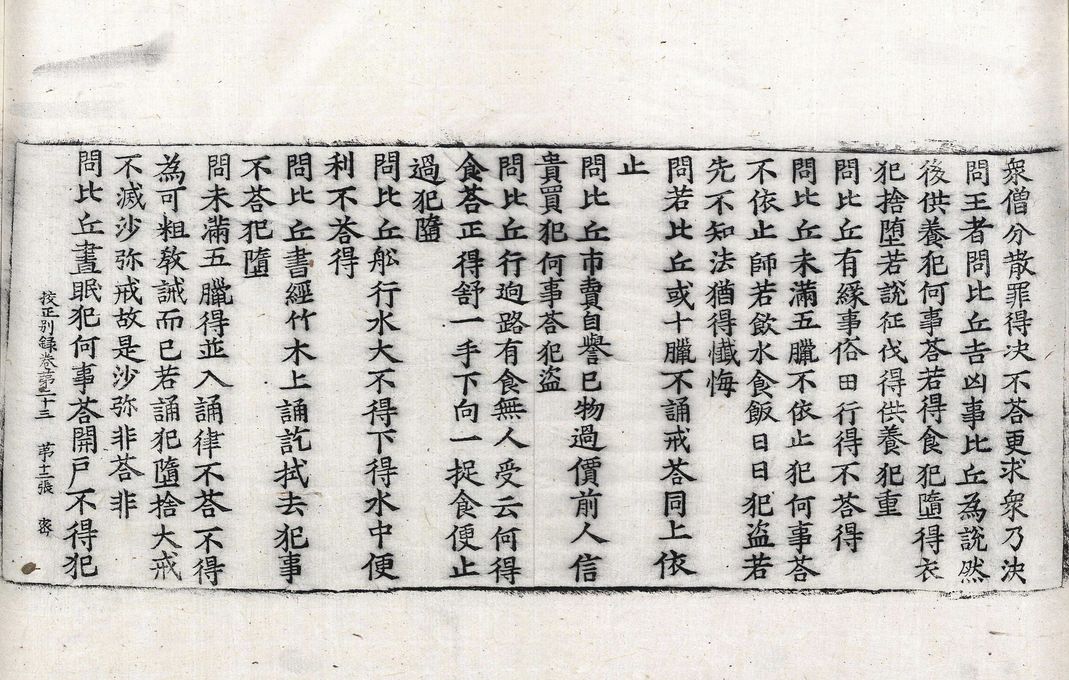 衆僧分散罪得决不荅更求衆乃决
問王者問比丘吉凶事比丘為說然
後供養犯何事荅若得食犯墮得衣
犯捨墮若說征伐得供養犯重
問比丘有緣事俗田行得不荅得
問比丘未滿五臘不依止犯何事荅
不依止師若飲水食飯日日犯盜若
先不知法猶得懺悔
問若比丘或十臘不誦戒荅同上依
止
問比丘市賣自譽已物過價前人信
貴買犯何事荅犯盜
問比丘行逈路有食無人受云何得
食荅正得舒一手下向一捉食便止
過犯墮
問比丘舩行水大不得下得水中便
利不荅得
問比丘書經竹木上誦訖拭去犯事
不荅犯墮
問未滿五臘得並入誦律不荅不得
為可粗敎誡而已若誦犯墮捨大戒
不滅沙弥戒故是沙弥非荅非
問比丘晝眠犯何事荅開戶不得犯
校正别錄卷第二十三 苐十二張 密